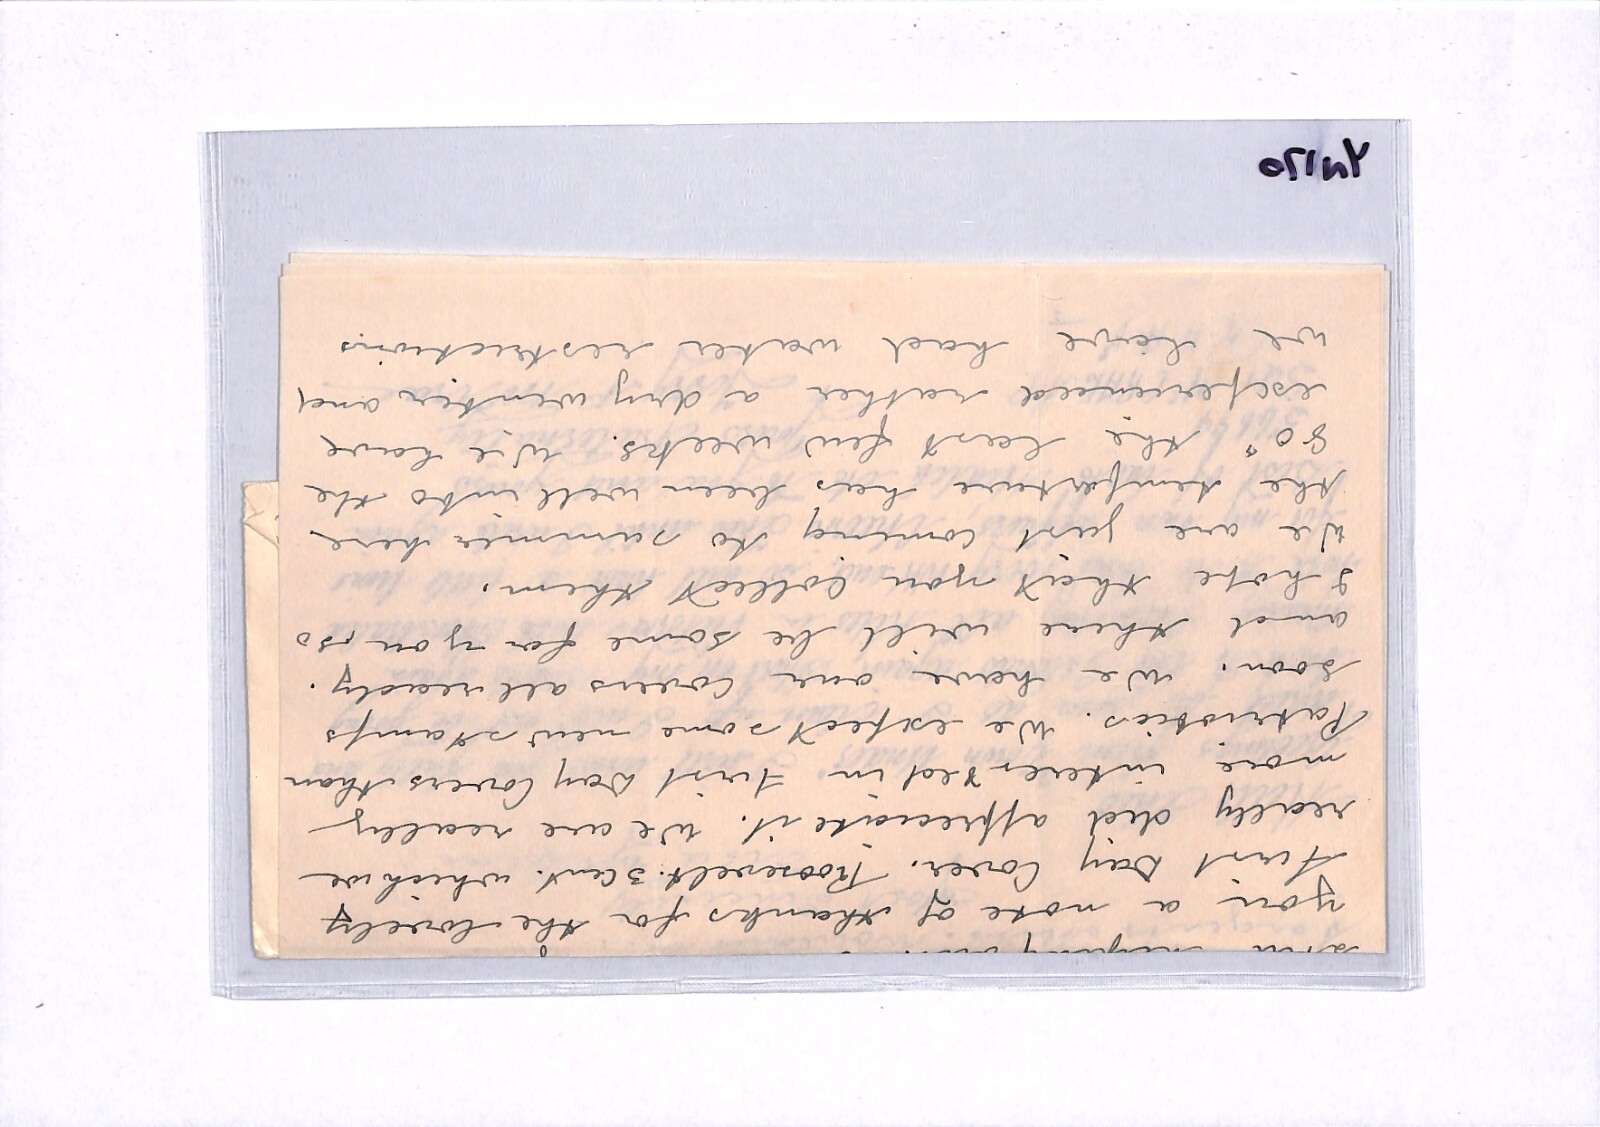 Yn170
you a note of thanks for the lovely
First Day Cover. Roosevelt. 3 Cent. which we
really did appreciate it. We are really
more interested in First Day Covers than
Patriotics. We expect some new stamps
soon. We have our Covers all ready.
and there will be some for you so
I hope that you Collect them.
We are just coming to summer here
the temperature has been well into the
80° the last few weeks. We have
experienced rather a dry winter and
we have had water restrictions